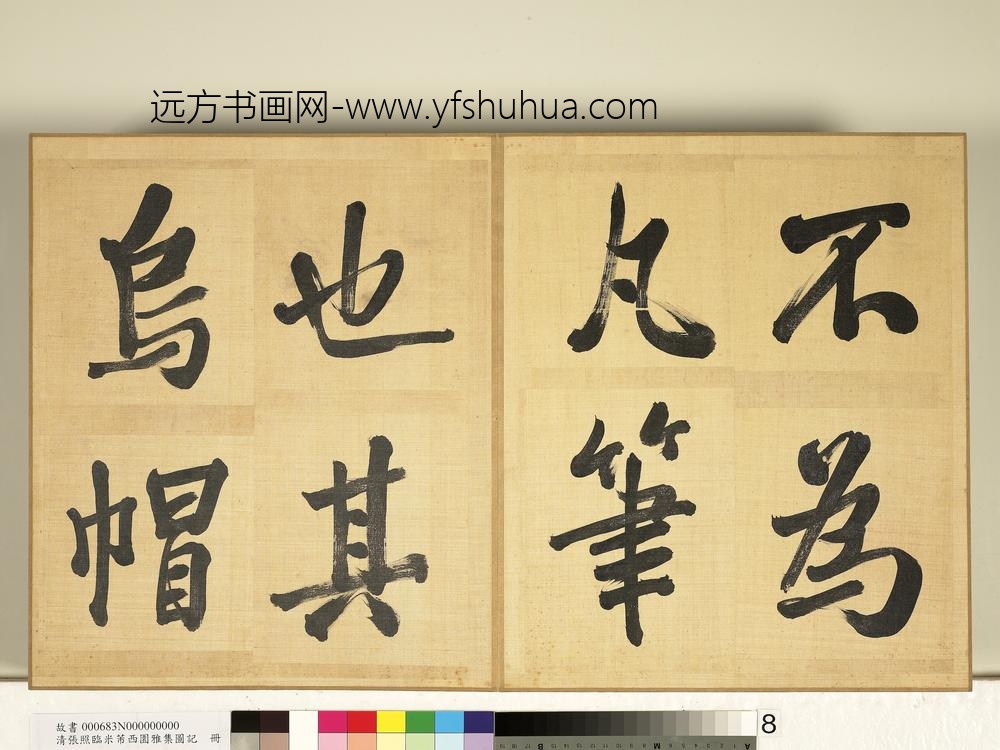 远方书画网-www.yfshuhua.com
不為
凡筆
也其
烏帽
故書 000683N000000000
清張照臨米芾西園雅集圖記 冊
8